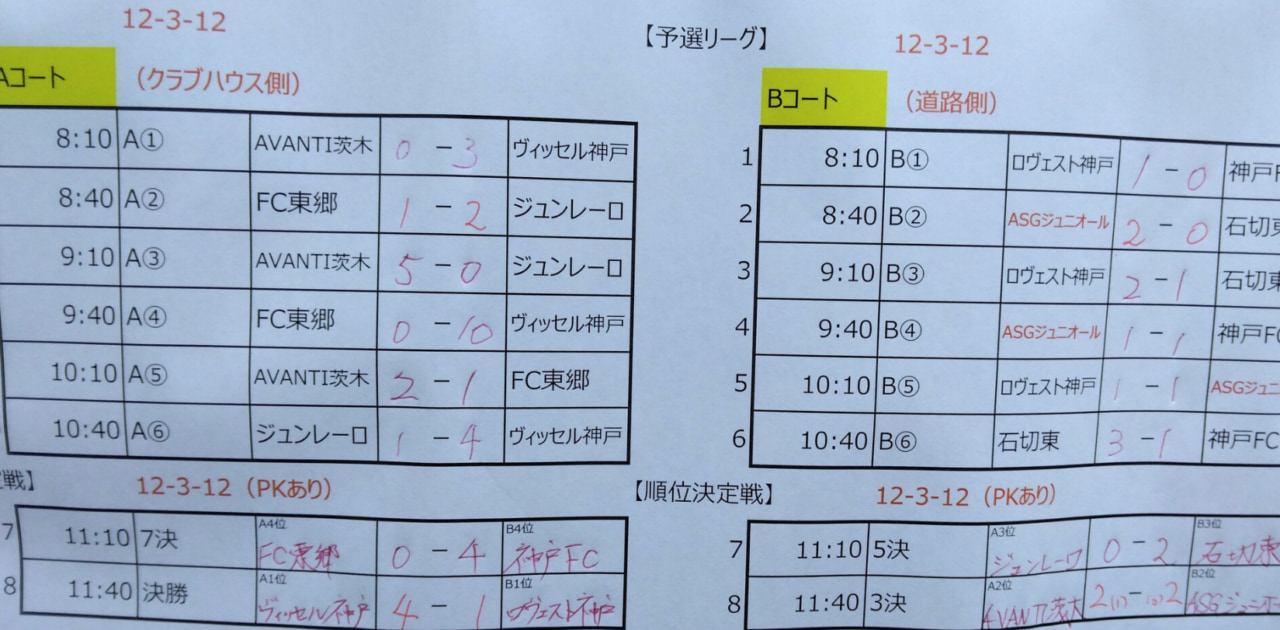 12-3-12
【予選リーグ】
12-3-12
Aコート
(クラブハウス側)
Bコート
(道路側)
8:10 A① AVANTI茨木 0 - 3 ヴィッセル神戸
8:40 A② FC東郷 1 - 2 ジュンレーロ
9:10 A③ AVANTI茨木 5 - 0 ジュンレーロ
9:40 A④ FC東郷 0 - 10 ヴィッセル神戸
10:10 A⑤ AVANTI茨木 2 - 1 FC東郷
10:40 A⑥ ジュンレーロ 1 - 4 ヴィッセル神戸
1 8:10 B① ロヴェスト神戸 1 - 0 神戸F
2 8:40 B② ASGジュニオール 2 - 0 石切東
3 9:10 B③ ロヴェスト神戸 2 - 1 石切東
4 9:40 B④ ASGジュニオール 1 - 1 神戸FC
5 10:10 B⑤ ロヴェスト神戸 1 - 1 ASGジュニ
6 10:40 B⑥ 石切東 3 - 1 神戸FC
戦】
12-3-12 (PKあり)
【順位決定戦】
12-3-12 (PKあり)
7 11:10 7決 A4位 FC東郷 0 - 4 B4位 神戸FC
8 11:40 決勝 A1位 ヴィッセル神戸 4 - 1 B1位 ロヴェスト神戸
7 11:10 5決 A3位 ジュンレーロ 0 - 2 B3位 石切東
8 11:40 3決 A2位 AVANTI茨木 2(1) - (2)2 B2位 ASGジュニオー